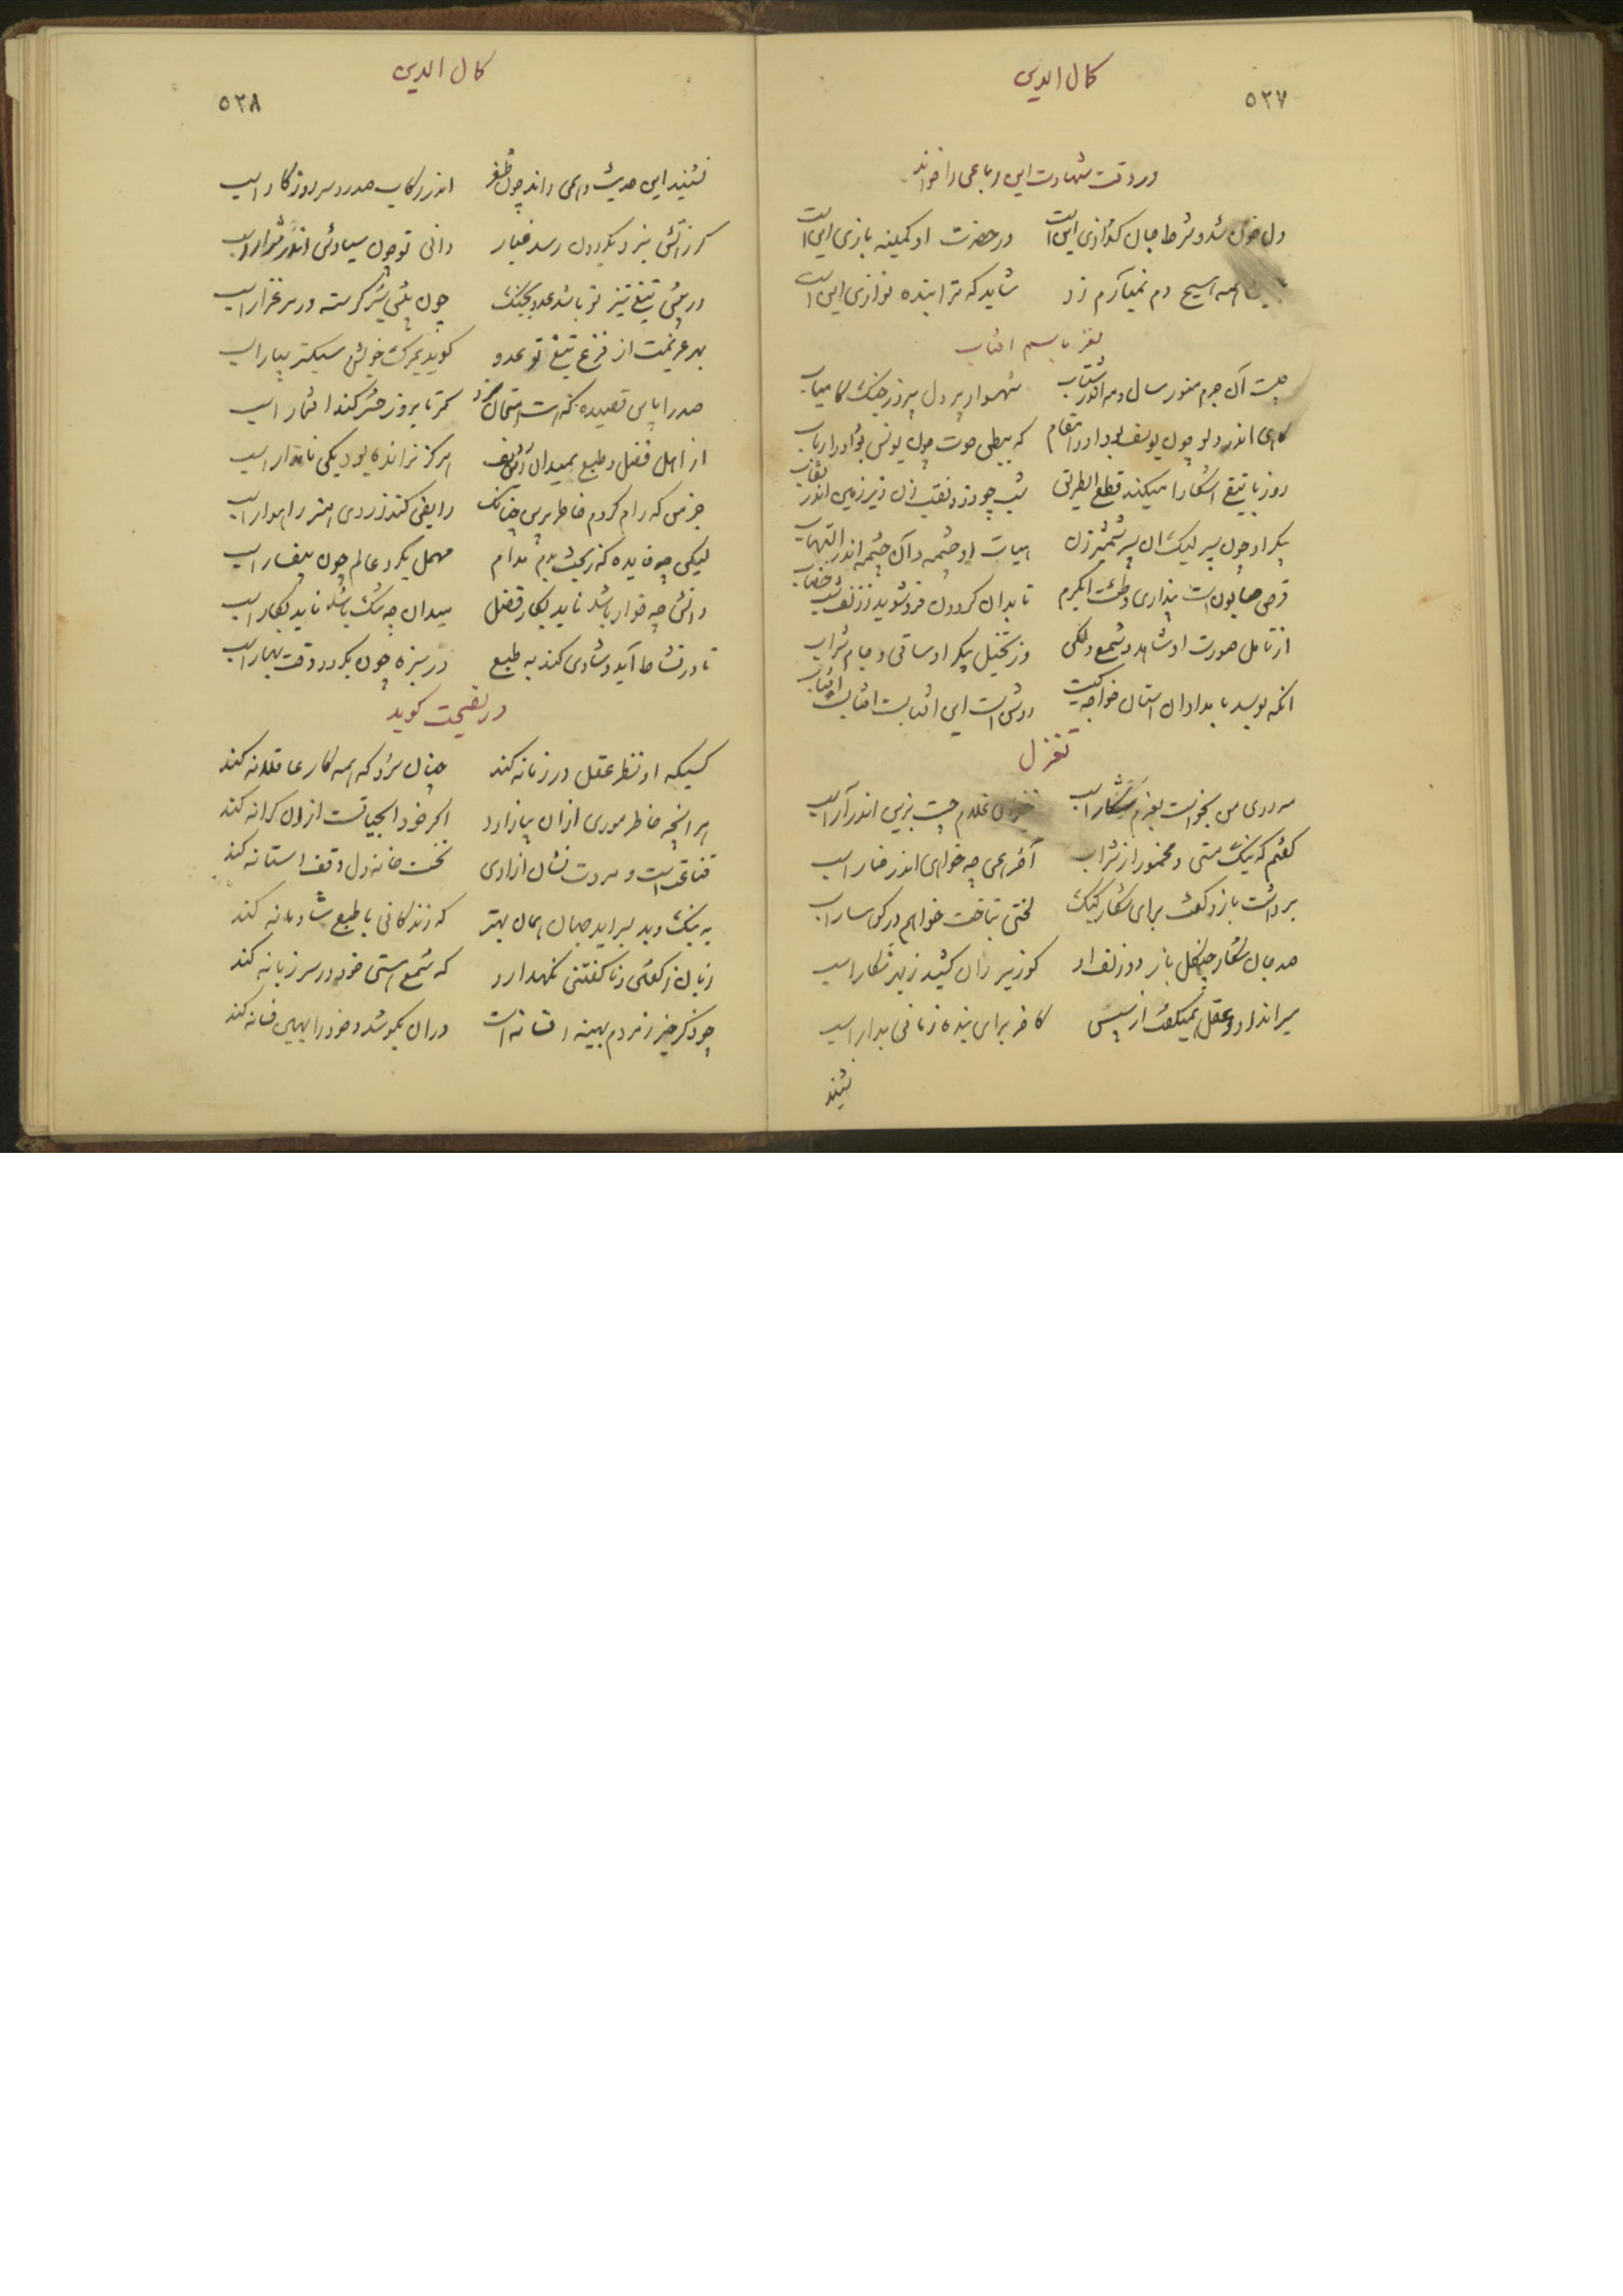 کمال الدین
۵۲۷
در وقت شهادت این رباعی را خواند
دل خون شد و شرط جان گدازی این است در حضرت او کمینه بازی این است
این همه هیچ دم نمیآرم زد شاید که ترا بنده نوازی این است
لغز باسم افتاب
چیست آن جرم منور سال و مه اندر شتاب شهسوار پر دل پیروز جنک کامیاب
کاهی اندر دلو چون یوسف بود او را مقام که ببطن حوت چون یونس بود او را ایاب
روز با تیغ آشکارا میکند قطع الطریق شب چو دزد نقب زن زیر زمین اندر نقاب
پیکر او چون سپر لیک ان سپر شمشیر زن هیات او چشمه و آن چشمه اندر التهاب
قرص صابون است پنداری و طشت ابکرم تا بدان کردون فرو شوید ز زلف شب خضاب
از تامل صورت او شاهد و شمع و لکن وز تخیل پیکر او ساقی و جام شراب
انکه بوسد بامدادان استان خواجه کیست روشن است این افتابست افتابست افتاب
تغزل
مه روی من بخواست بعزم شکار اسب غلام چست بزین اندر آر اسب
کفتم که نیک مستی و مخمور از شراب آخر همی چه خواهی اندر خمار اسب
برداشت باز و کفت برای شکار کبک لختی بتاخت خواهم در کوهسار اسب
صد جان شکار چنکل باز دو زلف او کو زیر ران کشید ز بهر شکار اسب
میراند او و عقل همیکفت از پیش کاخر برای بنده زمانی بدار اسب
نشنید
کمال الدین
۵۲۸
نشنید این حدیث و همی راند چون ظفر اندر رکاب صدر و سر روزکار اسب
کر زاتش نبرد بگردون رسد غبار دانی تو چون سیاوش اندر شرار اسب
در پیش تیغ تیز تو باشد عدو بجنک چون پیش شیر کرسنه در مرغزار اسب
بهر عزیمت از فزع تیغ تو عدو کوید بمرک خویش سبکتر بیار اسب
صدرا باین قصیده که هست امتحان خرد کمتر تا بروز حشر کند افتخار اسب
از اهل فضل و طبع بمیدان این ردیف هرکز نرانده بود یکی نامدار اسب
جز من که رام کردم خاطر برین چنانک رایض کند ز روی هنر راهوار اسب
لیکن چه فایده که ز بخت بدم مدام مهمل بکرد عالم چون بیفسار اسب
دانش چه خوار باشد ناید بکار فضل میدان چه تنک باشد ناید بکار اسب
تا در نشاط آید و شادی کند به طبع در سبزه چون بکردد وقت بهار اسب
در نصیحت کوید
کسیکه او نظر عقل در زمانه کند چنان سزد که همه کار عاقلانه کند
هر انچه خاطر موری ازان بیازارد اکر خود ابحیاتست ازان کرانه کند
قناعت است و مروت نشان ازادی نخست خانه دل وقف استانه کند
به نیک و بد بسر اید جهان همان بهتر که زندکانی با طبع شادمانه کند
زبان ز کفتن و ناکفتنی نکهدارد که شمع هستی خود در سر زبانه کند
چو ذکر خیر ز مردم بهینه افسانه است دران بکوشد و خود را بهین فسانه کند